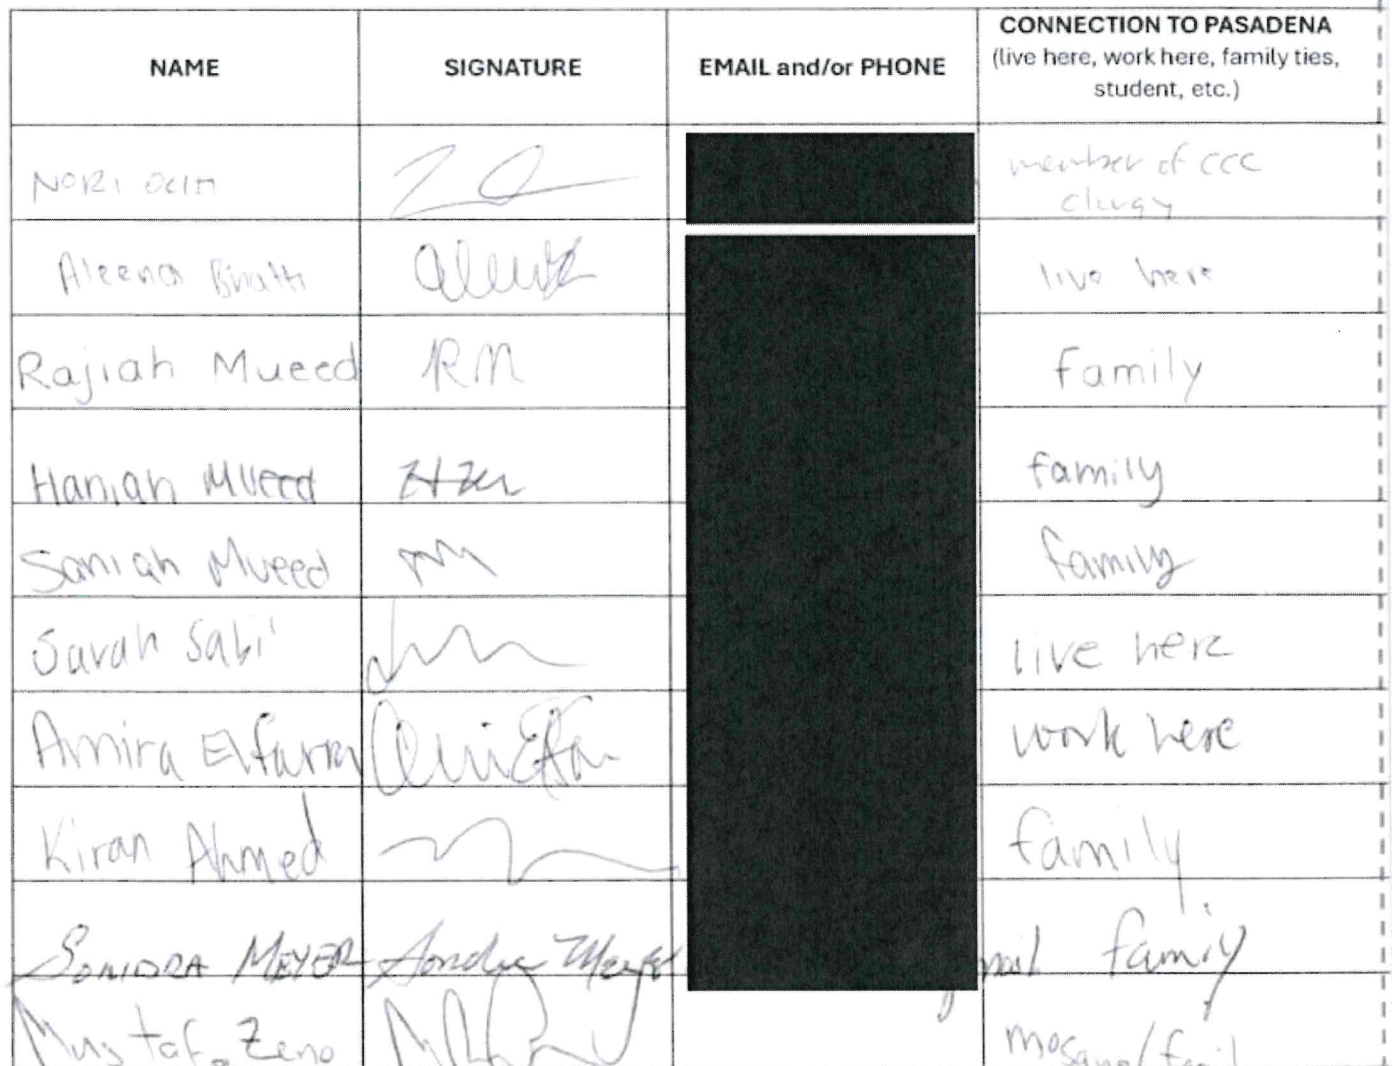 NAME SIGNATURE EMAIL and/or PHONE CONNECTION TO PASADENA
(live here, work here, family ties,
student, etc.)
NORI member of CCC
clergy
Aleena Bhatti live here
Rajiah Mueed RM family
Haniah Mueed family
Saniah Mueed family
Sarah Sabi live here
Amira Elfarra work here
Kiran Ahmed family
SONDRA MEYER Sondra Meyer mail family
Mustafa Zeno